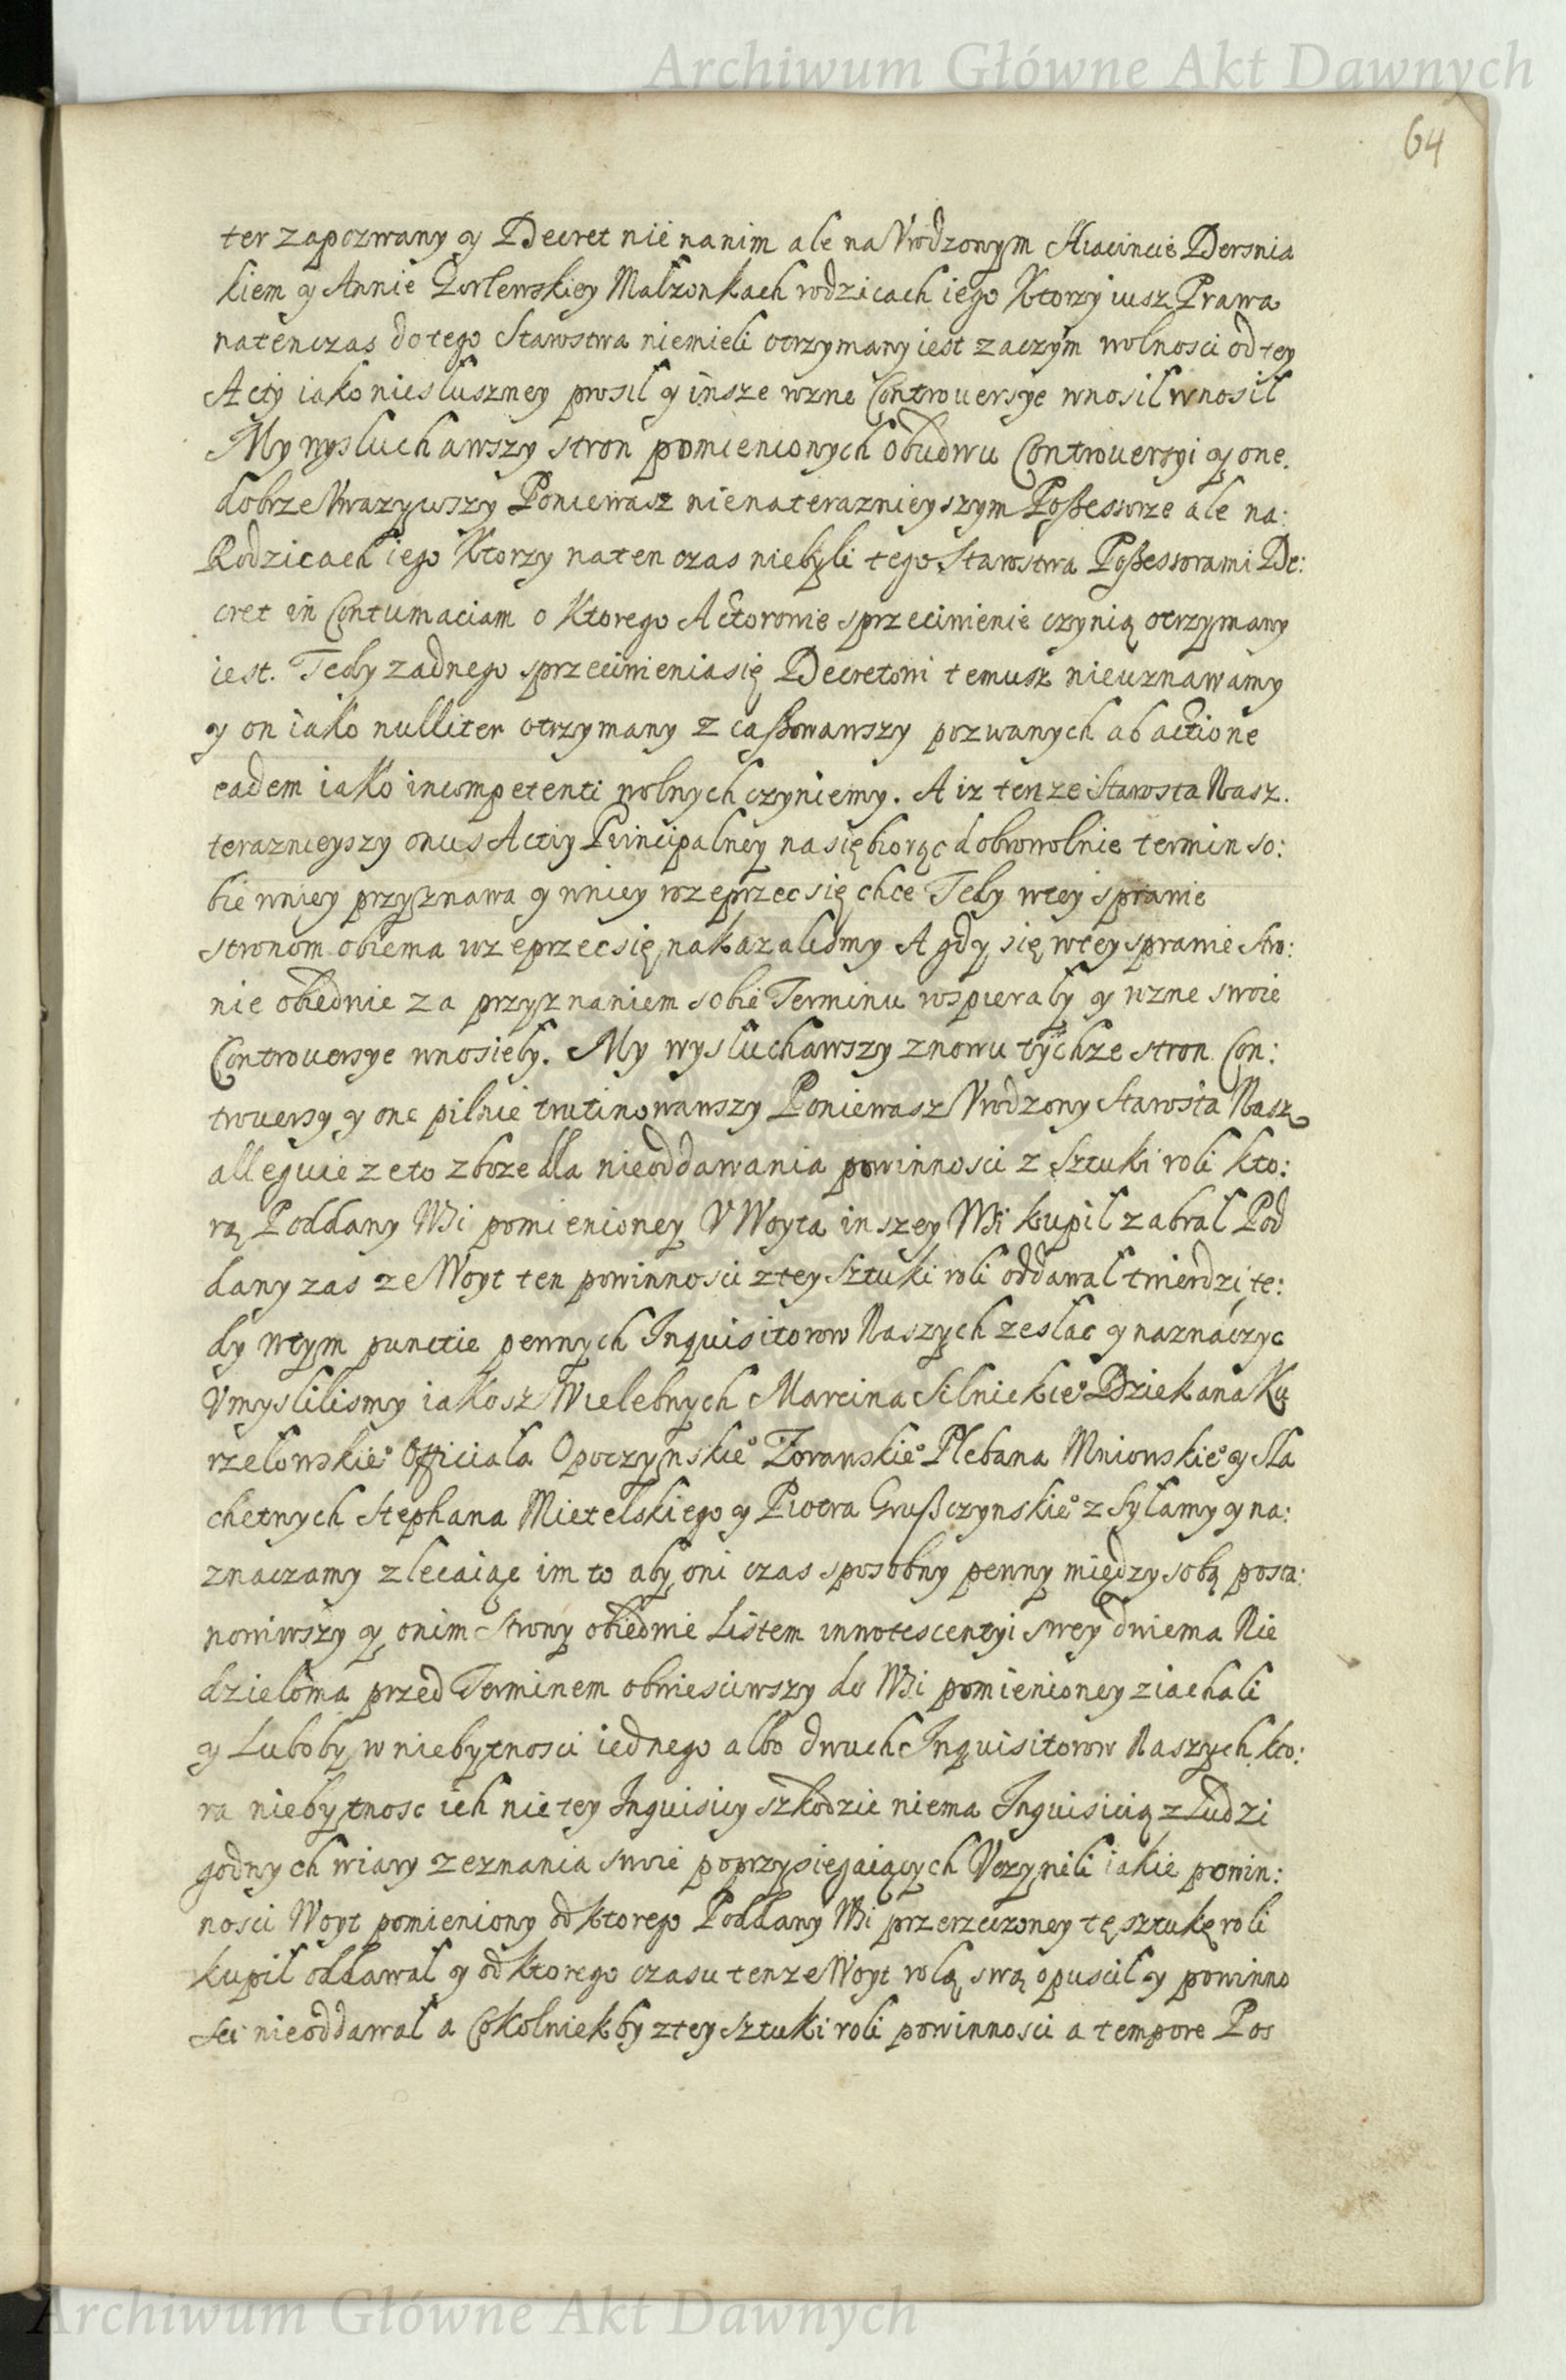 Archiwum Główne Akt Dawnych
64
ter zapozwany y Decret nie na nim ale na Vrodzonym Hiacincie Dersnia
kiem y Annie Malzonkach rodzicach iego Ktorzy iusz Prawa
natenczas do tego Starostwa niemieli otrzymany iest zaczym wolnosci od tey
Acty iako niesluszney prosil y insze rozne Controuersye wnosil wnosil
My wysluchawszy stron pomienionych obudwu Controuersyi y one
dobrze Vwazywszy Poniewasz nie na teraznieyszym Poßessorze ale na:
Rodzicach iego Ktorzy naten czas niebyli tego Starostwa Poßessorami De:
cret in Contumaciam o Ktorego Actorowie sprzeciwienie czynią otrzymany
iest. Tedy zadnego sprzeciwienia się Decretowi temusz nieuznawamy
y on iako nulliter otrzymany zcaßowawszy pozwanych ab actione
eadem iako incompetenti wolnych czyniemy. A iz tenze Starosta Nasz.
teraznieyszy onus Actiy Principalney na się biorąc dobrowolnie termin so:
bie wniey przyznawa y wniey rozeprzec się chce Tedy wtey sprawie
stronom obiema rozeprzec się nakazalismy A gdy się wtey sprawie Stro:
nie obiedwie za przyznaniem sobie Terminu wspieraly y rozne swoie
Controuersye wnosiely. My wysluchawszy znowu tychze stron Con:
trouersy y one pilnie trutinowawszy Poniewasz Vrodzony Starosta Nasz
alleguie ze to zboze dla nieoddawania powinnosci z sztuki roli kto:
rą Poddany Wsi pomienioney V Woyta inszey Wsi kupil zabral Pod
dany zas ze Woyt ten powinnosci ztey sztuki roli oddawal twierdzi te:
dy wtym punctie pewnych Inquisitorow Naszych zeslac y naznaczyc
Vmyslilismy iakosz Wielebnych Marcina Silnickie° Dziekana Ku
rzelowskie° Officiala Opoczynskie° Zorawskie° Plebana Mniowskie° y Sla
chetnych Stephana Mietelskiego y Piotra Grußczynskie° zsylamy y na:
znaczamy zlecaiąc im to aby oni czas sposobny pewny między sobą posta:
nowiwszy y onim strony obiedwie Listem innotescentyi swey dwiema Nie
dzieloma przed Terminem obwiesciwszy do Wsi pomienioney ziachali
y Luboby w niebytnosci iednego albo dwuch Inquisitorow Naszych kto:
ra niebytnosc ich nic tey Inquisicy szkodzic niema Inquisicią z Ludzi
godnych wiary zeznania swoie poprzysiegaiących Vczynili iakie powin:
nosci Woyt pomieniony od ktorego Poddany Wsi przerzeczoney tę sztukę roli
kupil oddawal y od ktorego czasu tenze Woyt rolą swą opuscil y powinno
sci nieoddawal a Cokolwiekby ztey sztuki roli powinnosci a tempore Pos
Archiwum Główne Akt Dawnych